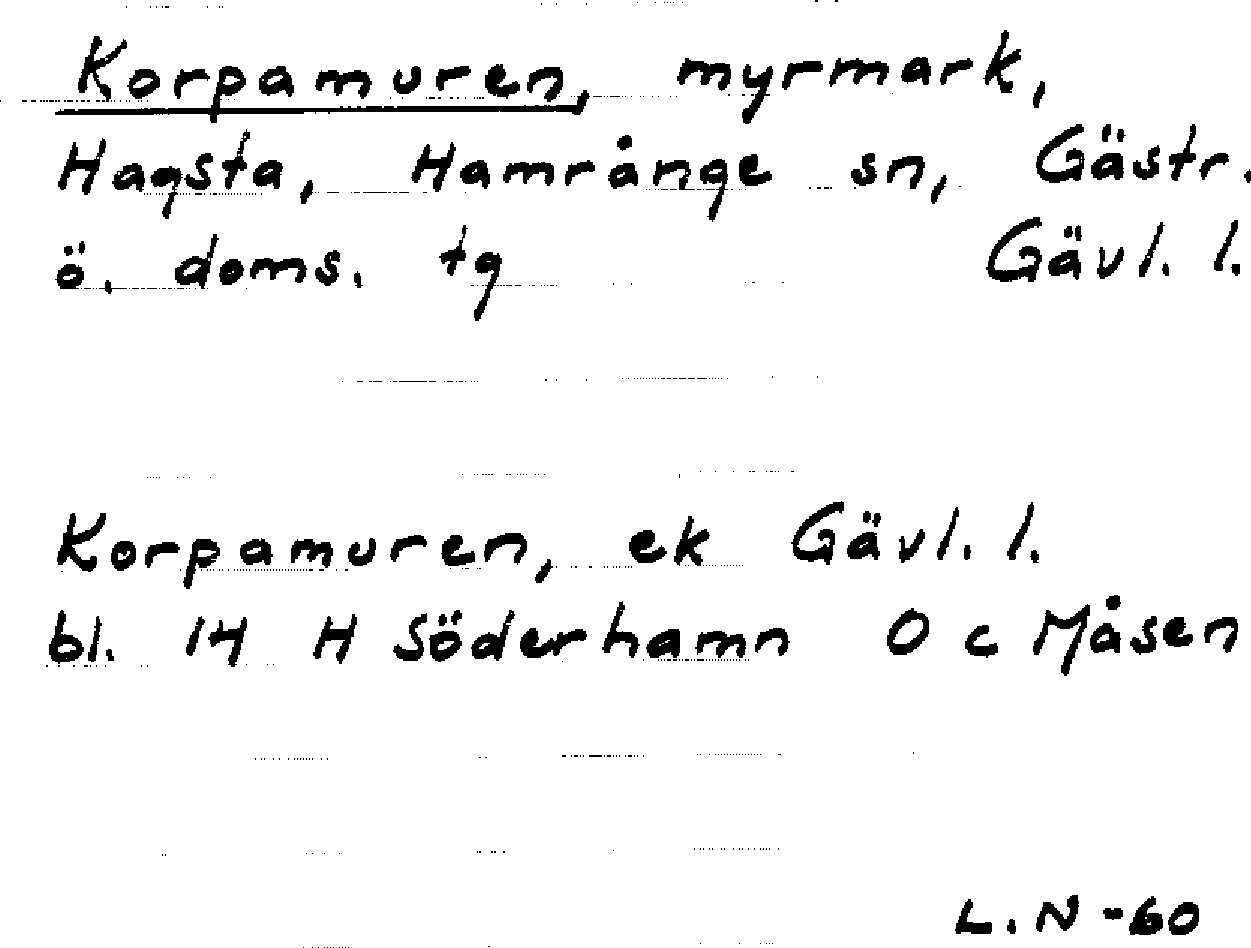 Korpamuren, myrmark,
Hagsta, Hamrånge sn, Gästr.
ö. doms. tg Gävl. l.
Korpamuren, ek Gävl. l.
bl. 14 H Söderhamn O c Måsen
L.N -60